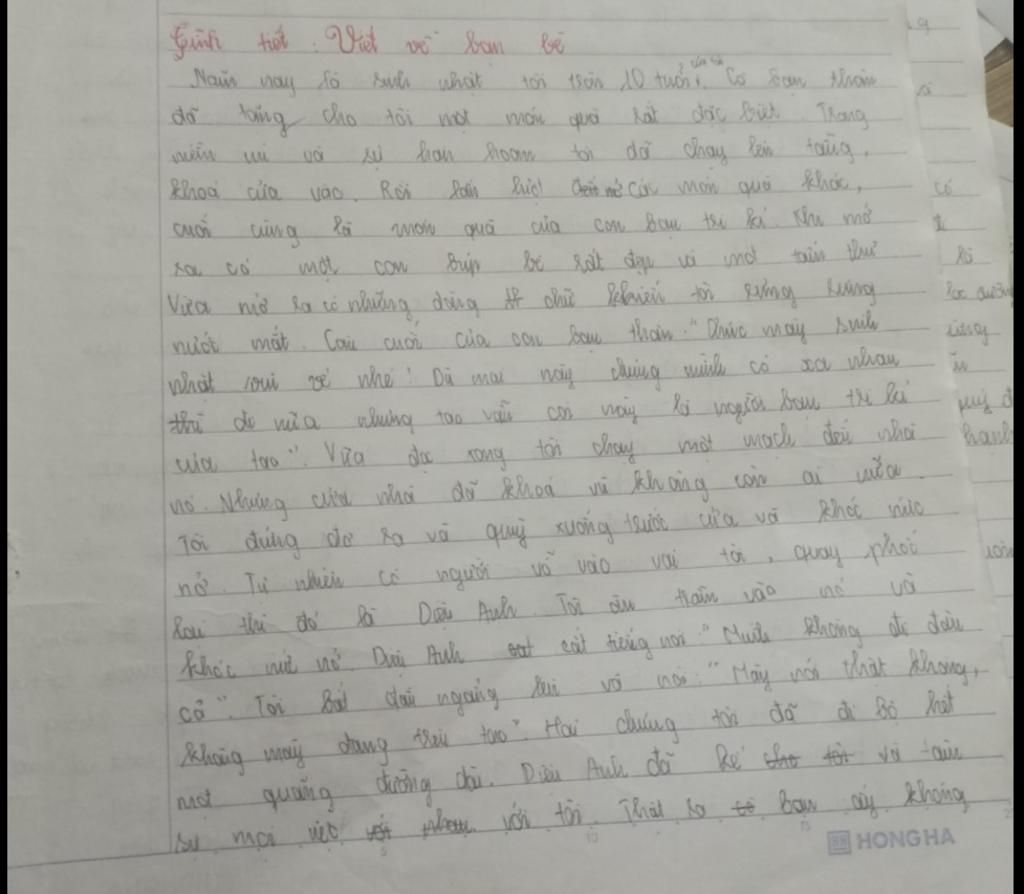 Tình tiết: Viết về bạn bè
Năm nay là sinh nhật tôi tròn 10 tuổi, Cô bạn thân
đã tặng cho tôi một món quà rất đặc biệt. Trong
niềm vui và sự hân hoan tôi đã chạy lên tầng,
khoá cửa vào. Rồi lần lượt mở các món quà khác,
cuối cùng là món quà của con bạn tri kỉ. Khi mở
ra có một con búp bê rất đẹp và một tấm thư
Vừa mở ra có những dòng chữ khiến tôi rưng rưng
nước mắt. Câu cuối của con bạn thân: "Chúc mày sinh
nhật vui vẻ nhé! Dù mai này chúng mình có xa nhau
thì đi nữa nhưng tao vẫn coi mày là người bạn tri kỉ
của tao". Vừa đọc xong tôi chạy một mạch đến nhà
nó. Nhưng cửa nhà đã khoá và không còn ai nữa.
Tôi đứng đơ ra và quỳ xuống trước cửa và khóc nức
nở. Tự nhiên có người vỗ vào vai tôi, quay phắt
lại thì đó là Diệu Anh. Tôi ôm trầm vào nó và
khóc nức nở. Diệu Anh cất tiếng nói "Mình không đi đâu
cả". Tôi bắt đầu ngẩng lên và nói: "Mày nói thật không,
không mày đang trêu tao". Hai chúng tôi đã đi bộ hết
một quãng đường dài. Diệu Anh đã kể cho tôi và tâm
sự mọi việc với tôi. Thật ra bạn ấy không
HONG HA